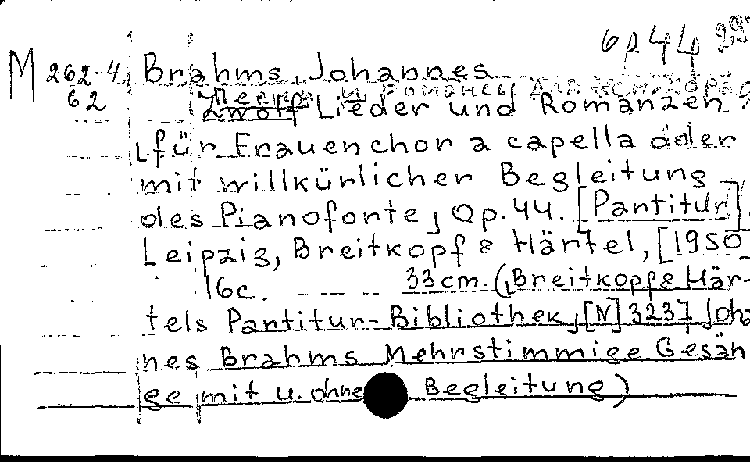 6р44
M 262-4 Brahms, Johannes
62 Zwölf Lieder und Romanzen
für Frauenchor a capella oder
mit willkürlicher Begleitung
des Pianoforte, Op. 44. [Partitur].
Leipzig, Breitkopf & Härtel, [1950
16c. 33cm. (Breitkopf & Här-
tels Partitur-Bibliothek, [N] 3237 Joha
nes Brahms Mehrstimmige Gesän
ge mit u. ohne Begleitung)